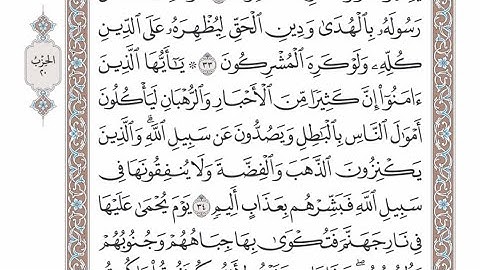 رَسُولَهُۥ بِٱلْهُدَىٰ وَدِينِ ٱلْحَقِّ لِيُظْهِرَهُۥ عَلَى ٱلدِّينِ
كُلِّهِۦ وَلَوْ كَرِهَ ٱلْمُشْرِكُونَ ٣٣ ۞ يَٰٓأَيُّهَا ٱلَّذِينَ
ءَامَنُوٓا۟ إِنَّ كَثِيرًا مِّنَ ٱلْأَحْبَارِ وَٱلرُّهْبَانِ لَيَأْكُلُونَ
أَمْوَٰلَ ٱلنَّاسِ بِٱلْبَٰطِلِ وَيَصُدُّونَ عَن سَبِيلِ ٱللَّهِ ۗ وَٱلَّذِينَ
يَكْنِزُونَ ٱلذَّهَبَ وَٱلْفِضَّةَ وَلَا يُنفِقُونَهَا فِى
سَبِيلِ ٱللَّهِ فَبَشِّرْهُم بِعَذَابٍ أَلِيمٍ ٣٤ يَوْمَ يُحْمَىٰ عَلَيْهَا
فِى نَارِ جَهَنَّمَ فَتُكْوَىٰ بِهَا جِبَاهُهُمْ وَجُنُوبُهُمْ
الحزب
٢٠